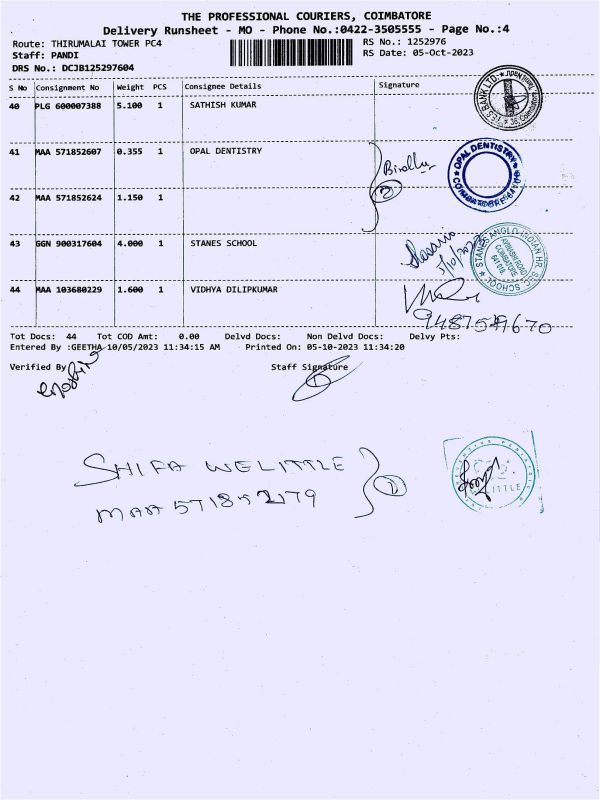 THE PROFESSIONAL COURIERS, COIMBATORE
Delivery Runsheet - MO - Phone No.:0422-3505555 - Page No.:4
Route: THIRUMALAI TOWER PC4 RS No.: 1252976
Staff: PANDI RS Date: 05-Oct-2023
DRS No.: DCJB125297604
S No Consignment No Weight PCS Consignee Details Signature
40 PLG 600007388 5.100 1 SATHISH KUMAR
41 MAA 571852607 0.355 1 OPAL DENTISTRY
OPAL DENTISTRY
2
42 MAA 571852624 1.150 1
43 GGN 900317604 4.000 1 STANES SCHOOL
STANES ANGLO INDIAN HR. SEC. SCHOOL
AVINASHI ROAD
COIMBATORE
641 018
5/10/2023
44 MAA 103680229 1.600 1 VIDHYA DILIPKUMAR
Tot Docs: 44 Tot COD Amt: 0.00 Delvd Docs: Non Delvd Docs: Delvy Pts:
Entered By :GEETHA 10/05/2023 11:34:15 AM Printed On: 05-10-2023 11:34:20
Verified By Staff Signature
SHIFA WELITTLE
MAA 571852179